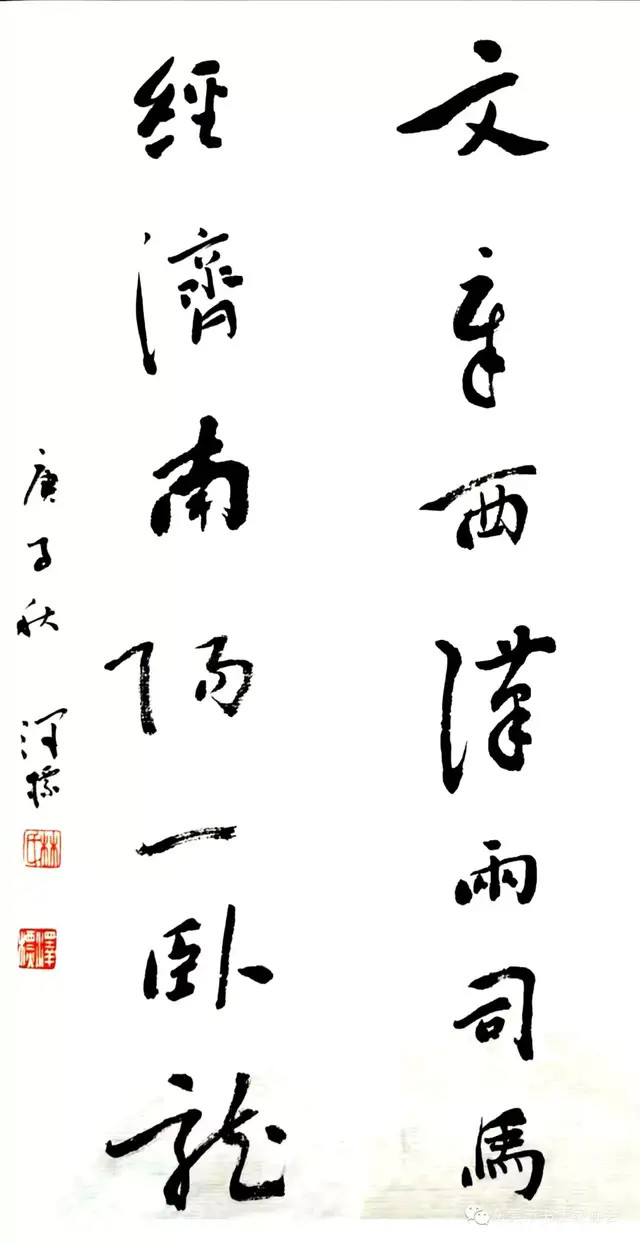 文章西漢兩司馬
經濟南陽一卧龍
庚子秋 澤標
林氏
澤標